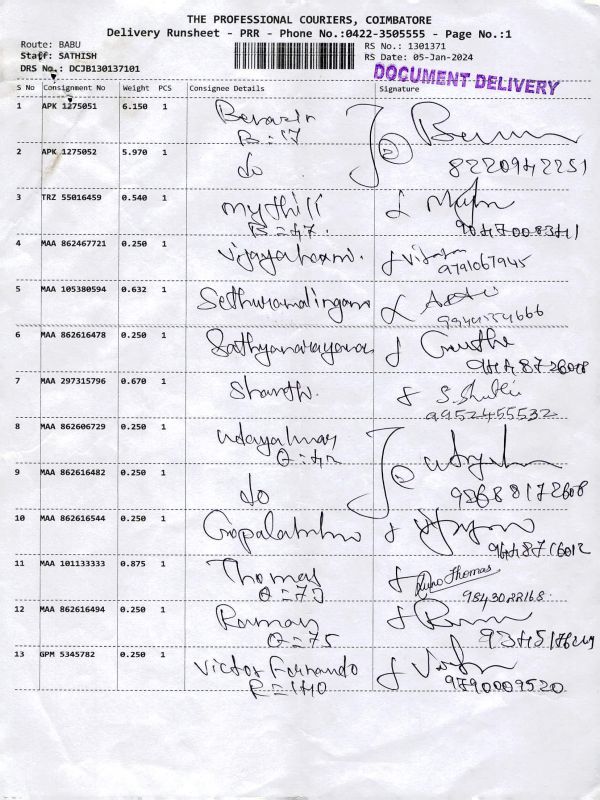 THE PROFESSIONAL COURIERS, COIMBATORE
Delivery Runsheet - PRR - Phone No.:0422-3505555 - Page No.:1
Route: BABU
Staff: SATHISH
DRS No.: DCJB130137101
RS No.: 1301371
RS Date: 05-Jan-2024
DOCUMENT DELIVERY
S No Consignment No Weight PCS Consignee Details Signature
1 APK 1275051 6.150 1
B=17
2 APK 1275052 5.970 1 do
8220942251
3 TRZ 55016459 0.540 1 Mythili
B=47.
4 MAA 862467721 0.250 1 Vijayalaxmi.
9791067945
5 MAA 105380594 0.632 1 Sethuramalingam
6 MAA 862616478 0.250 1 Sathyanarayanan
7 MAA 297315796 0.670 1 Shanthi.
9952455532
8 MAA 862606729 0.250 1 Udayakumar
Q=42
9 MAA 862616482 0.250 1 do
95688172608
10 MAA 862616544 0.250 1
9648716012
11 MAA 101133333 0.875 1 Thomas Thomas
Q=73 9843022168
12 MAA 862616494 0.250 1 Raman
Q=75
13 GPM 5345782 0.250 1 Victor Fernando
R=140 9790009520